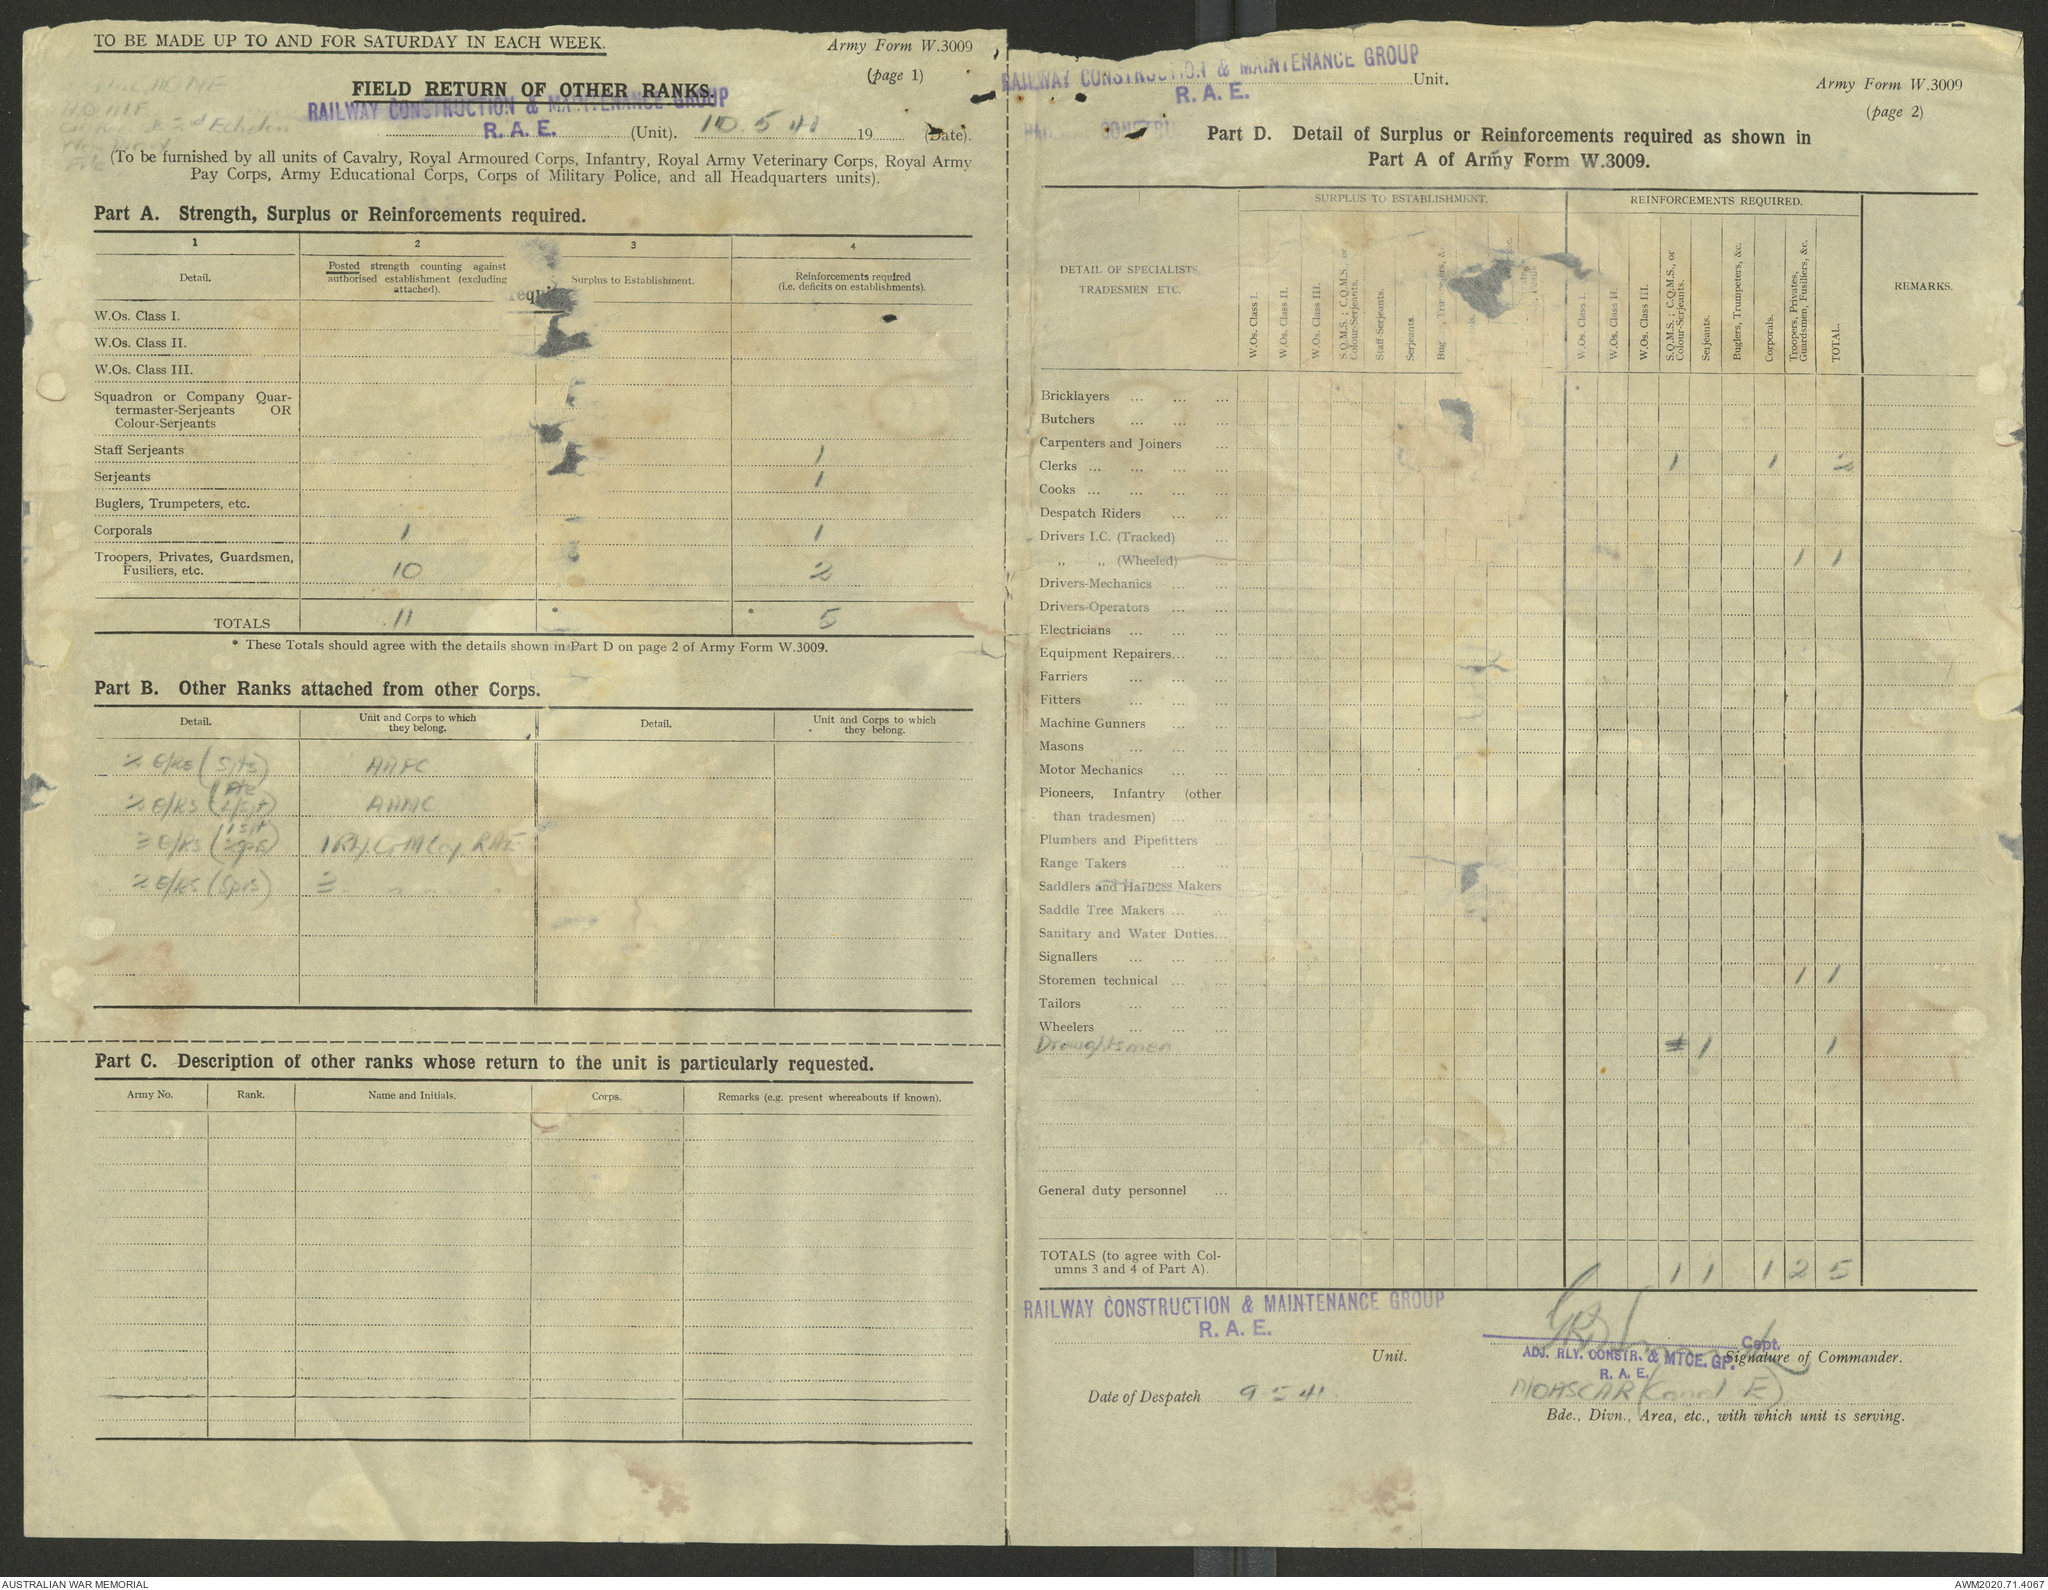 TO BE MADE UP TO AND FOR SATURDAY IN EACH WEEK.
Army Form W.3009
(page 1)
HQ
2nd Echelon
File
FIELD RETURN OF OTHER RANKS.
RAILWAY CONSTRUCTION & MAINTENANCE GROUP
R. A. E. (Unit). 10.5.41 19 (Date).
(To be furnished by all units of Cavalry, Royal Armoured Corps, Infantry, Royal Army Veterinary Corps, Royal Army
Pay Corps, Army Educational Corps, Corps of Military Police, and all Headquarters units).
Part A. Strength, Surplus or Reinforcements required.
1 2 3 4
Detail.
Posted strength counting against
authorised establishment (excluding
attached).
Surplus to Establishment.
Reinforcements required
(i.e. deficits on establishments).
W.Os. Class I.
W.Os. Class II.
W.Os. Class III.
Squadron or Company Quar-
termaster-Serjeants OR
Colour-Serjeants
Staff Serjeants 1
Serjeants 1
Buglers, Trumpeters, etc.
Corporals 1 1
Troopers, Privates, Guardsmen,
Fusiliers, etc. 10 2
TOTALS 11 * * 5
* These Totals should agree with the details shown in Part D on page 2 of Army Form W.3009.
Part B. Other Ranks attached from other Corps.
Detail.
Unit and Corps to which
they belong.
Detail.
Unit and Corps to which
they belong.
2 O/Rs (Sjts) AAPC
2 O/RS (Pte L/Sjt) AAMC
3 O/RS (1 Sjt
2 O/RS (Sprs)
Part C. Description of other ranks whose return to the unit is particularly requested.
Army No. Rank. Name and Initials. Corps. Remarks (e.g. present whereabouts if known).
RAILWAY CONSTRUCTION & MAINTENANCE GROUP
R. A. E. Unit.
Army Form W.3009
(page 2)
Part D. Detail of Surplus or Reinforcements required as shown in
Part A of Army Form W.3009.
DETAIL OF SPECIALISTS,
TRADESMEN ETC.
SURPLUS TO ESTABLISHMENT.
W.Os. Class I.
W.Os. Class II.
W.Os. Class III.
S.Q.M.S.; C.Q.M.S., or
Colour-Serjeants.
Staff-Serjeants.
Serjeants.
REINFORCEMENTS REQUIRED.
W.Os. Class I.
W.Os. Class II.
W.Os. Class III.
S.Q.M.S.; C.Q.M.S., or
Colour-Serjeants.
Serjeants.
Buglers, Trumpeters, &c.
Corporals.
Troopers, Privates,
Guardsmen, Fusiliers, &c.
TOTAL.
REMARKS.
Bricklayers ... ... ...
Butchers ... ... ...
Carpenters and Joiners ...
Clerks ... ... ... ... 1 1 2
Cooks ... ... ... ...
Despatch Riders ... ...
Drivers I.C. (Tracked) ...
„ „ (Wheeled) ... 1 1
Drivers-Mechanics ... ...
Drivers-Operators ... ...
Electricians ... ... ...
Equipment Repairers... ...
Farriers ... ... ...
Fitters ... ... ...
Machine Gunners ... ...
Masons ... ... ...
Motor Mechanics ... ...
Pioneers, Infantry (other
than tradesmen) ... ...
Plumbers and Pipefitters ...
Range Takers ... ...
Saddlers and Harness Makers
Saddle Tree Makers ... ...
Sanitary and Water Duties...
Signallers ... ... ...
Storemen technical ... ... 1 1
Tailors ... ... ...
Wheelers ... ... ...
Draughtsmen 1 1
General duty personnel ...
TOTALS (to agree with Col-
umns 3 and 4 of Part A). 1 1 1 2 5
RAILWAY CONSTRUCTION & MAINTENANCE GROUP
R. A. E.
Unit.
Capt.
ADJ. RLY. CONSTR. & MTCE. GP.
R. A. E.
Signature of Commander.
Date of Despatch 9.5.41.
MOASCAR (Canal E)
Bde., Divn., Area, etc., with which unit is serving.
AUSTRALIAN WAR MEMORIAL
AWM2020.71.4067